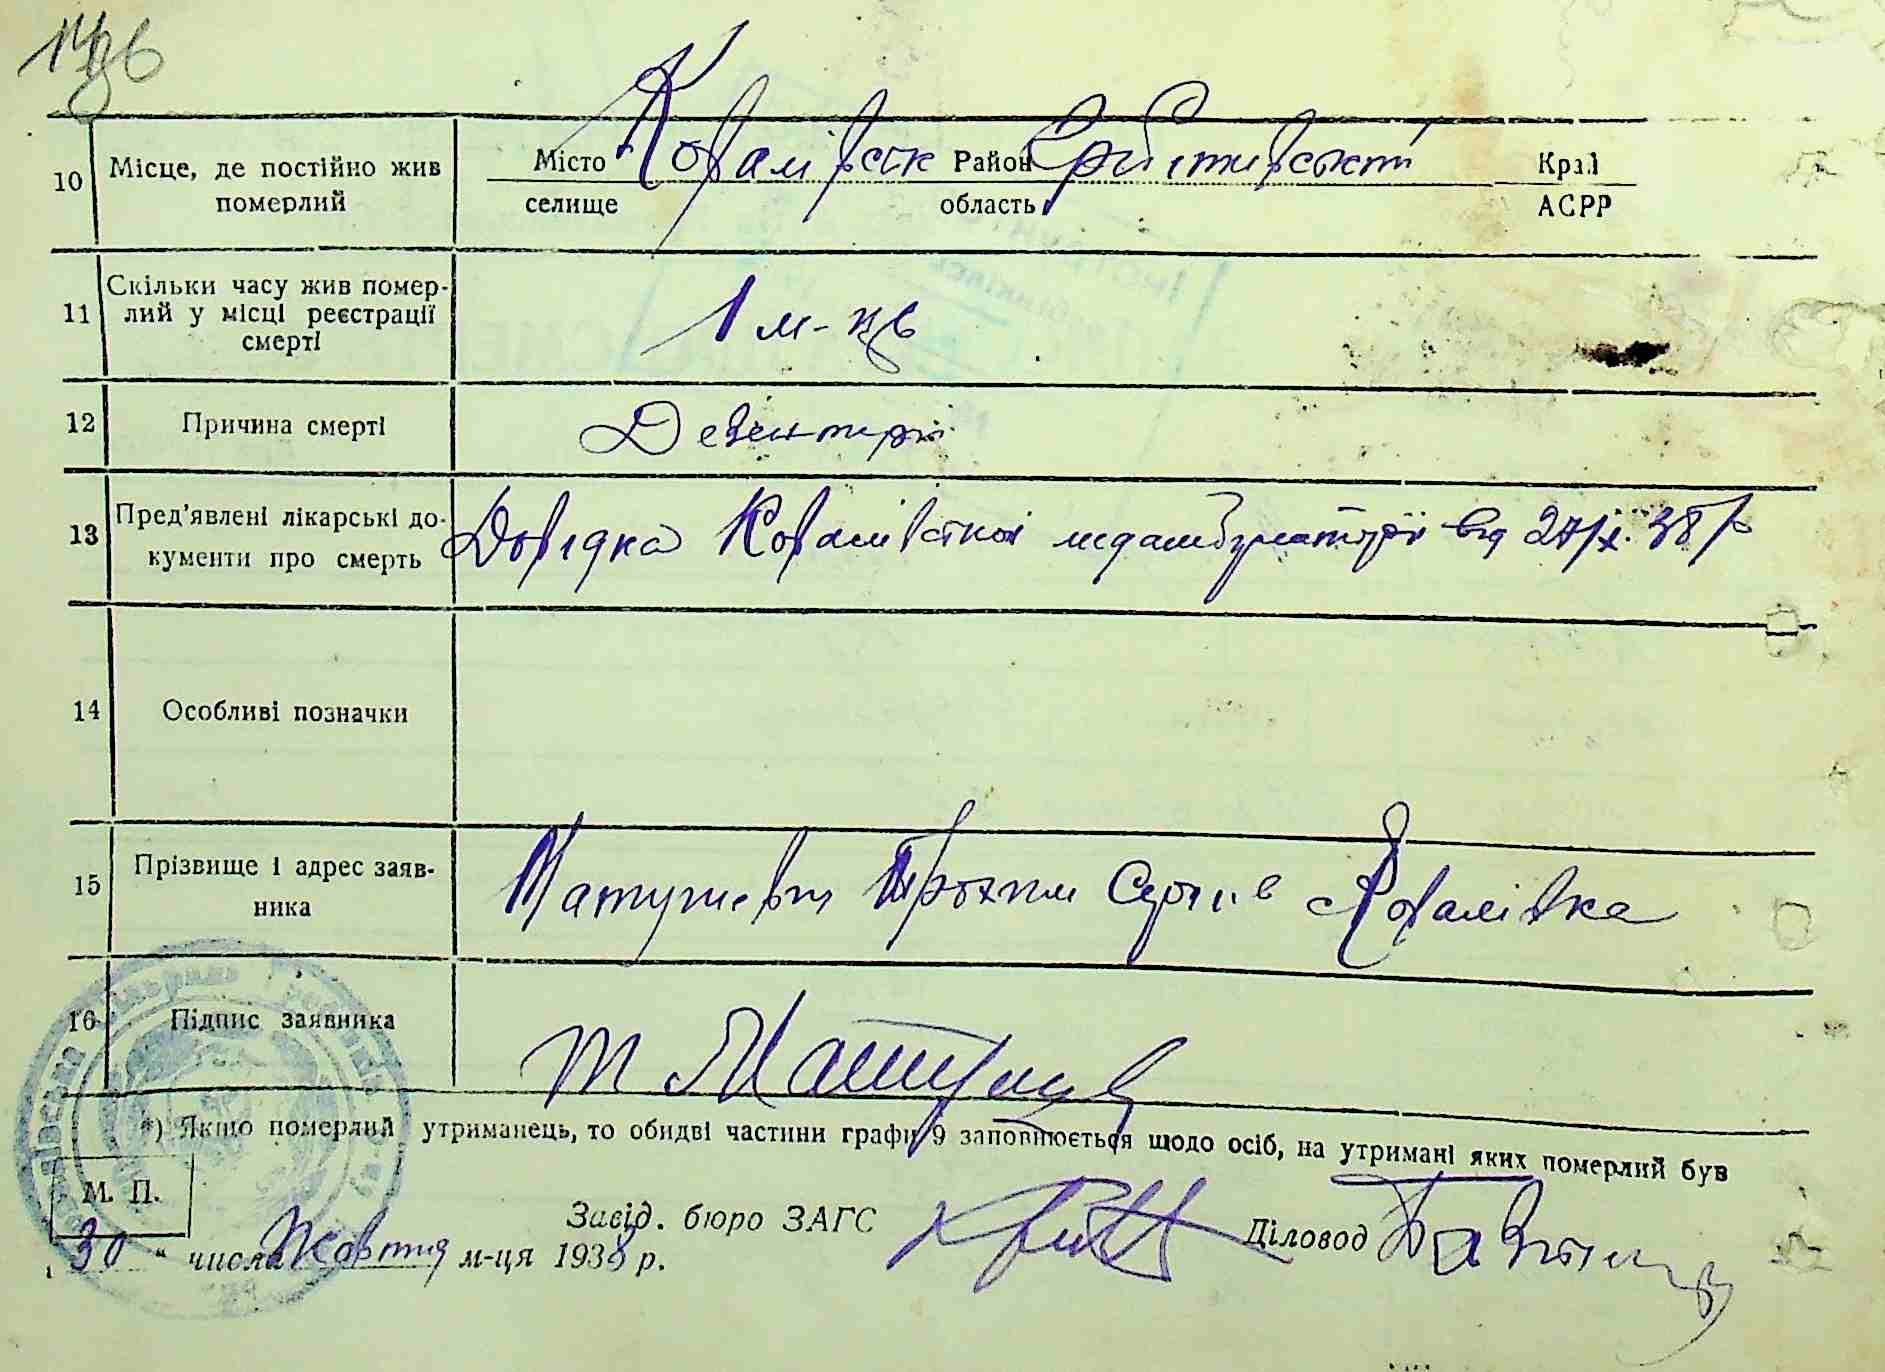 10 Місце, де постійно жив померлий
Місто Ковалівськ Район Край
селище область АСРР
11 Скільки часу жив помер-
лий у місці реєстрації
смерті
1 м-ць
12 Причина смерті
Дезентерія
13 Пред'явлені лікарські до-
кументи про смерть
Довідка Ковалівської медамбулаторії від 27/X. 38 р
14 Особливі позначки
15 Прізвище і адрес заяв-
ника
Трохим Сергіїв с Ковалівка
16 Підпис заявника
*) Якщо померлий утриманець, то обидві частини графи 9 заповнюється щодо осіб, на утримані яких померлий був
М. П.
Завід. бюро ЗАГС Діловод
„ 30 “ числа Жовтня м-ця 1938 р.